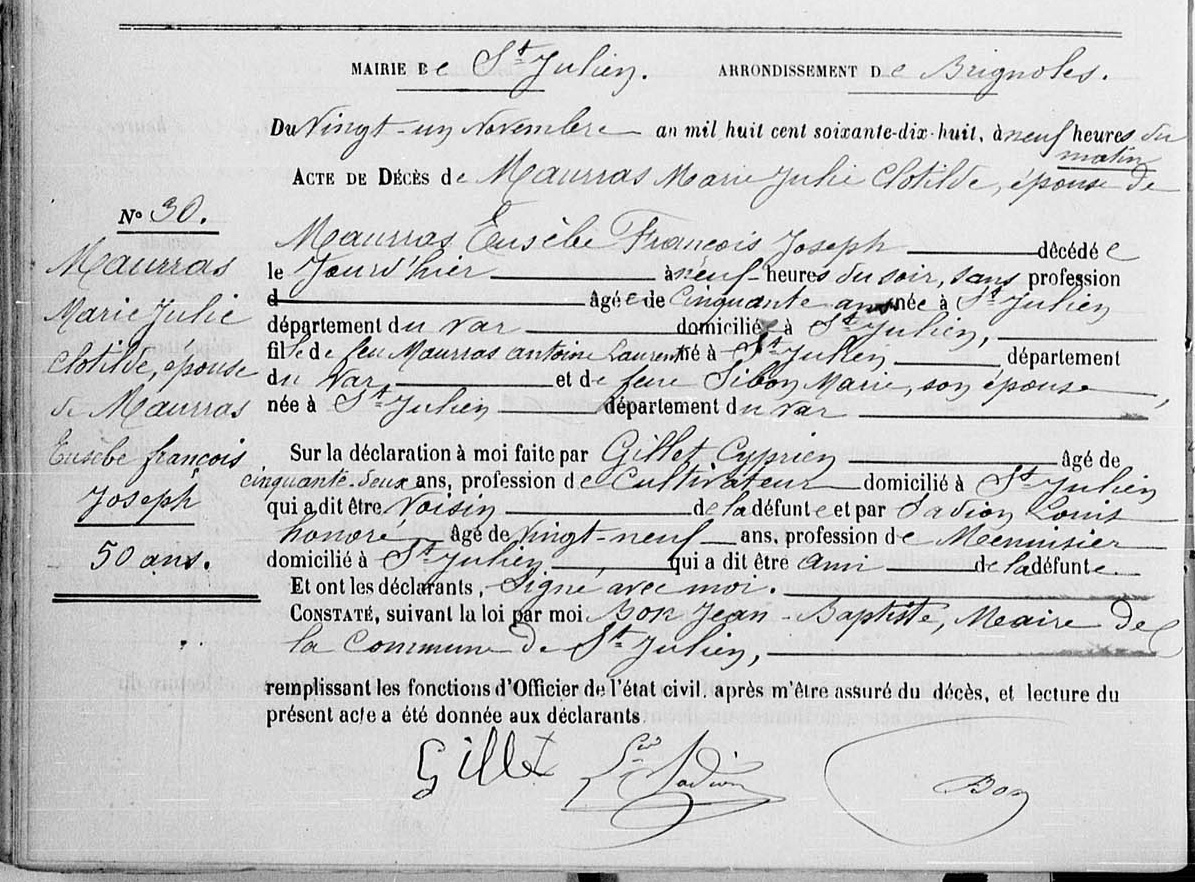 MAIRIE De St Julien. ARRONDISSEMENT De Brignoles.
Du Vingt-un Novembre an mil huit cent soixante-dix-huit, à neuf heures du
matin
ACTE DE DÉCÈS de Maurras Marie Julie Clotilde, épouse de
No 30.
Maurras
Marie Julie
Clotilde, épouse
de Maurras
Eusèbe françois
Joseph
50 ans.
Maurras Eusèbe François Joseph décédée
le Jourd'hier à neuf heures du soir, sans profession
d âgée de Cinquante ans née à St Julien
département du Var domiciliée à St Julien,
fille de feu Maurras antoine Laurent né à St Julien, département
du Var, et de feue Sibon Marie, son épouse,
née à St Julien département du Var
Sur la déclaration à moi faite par Gillet Cyprien âgé de
cinquante-deux ans, profession de Cultivateur domicilié à St Julien
qui a dit être Voisin de la défunte et par Sadion Louis
honoré âgé de Vingt-neuf ans, profession de Menuisier
domicilié à St Julien, qui a dit être ami de la défunte
Et ont les déclarants, Signé avec moi.
CONSTATÉ, suivant la loi par moi Bon Jean-Baptiste, Maire de
la Commune de St Julien,
remplissant les fonctions d'Officier de l'état civil, après m'être assuré du décès, et lecture du
présent acte a été donnée aux déclarants
Gillet Sadion Bon